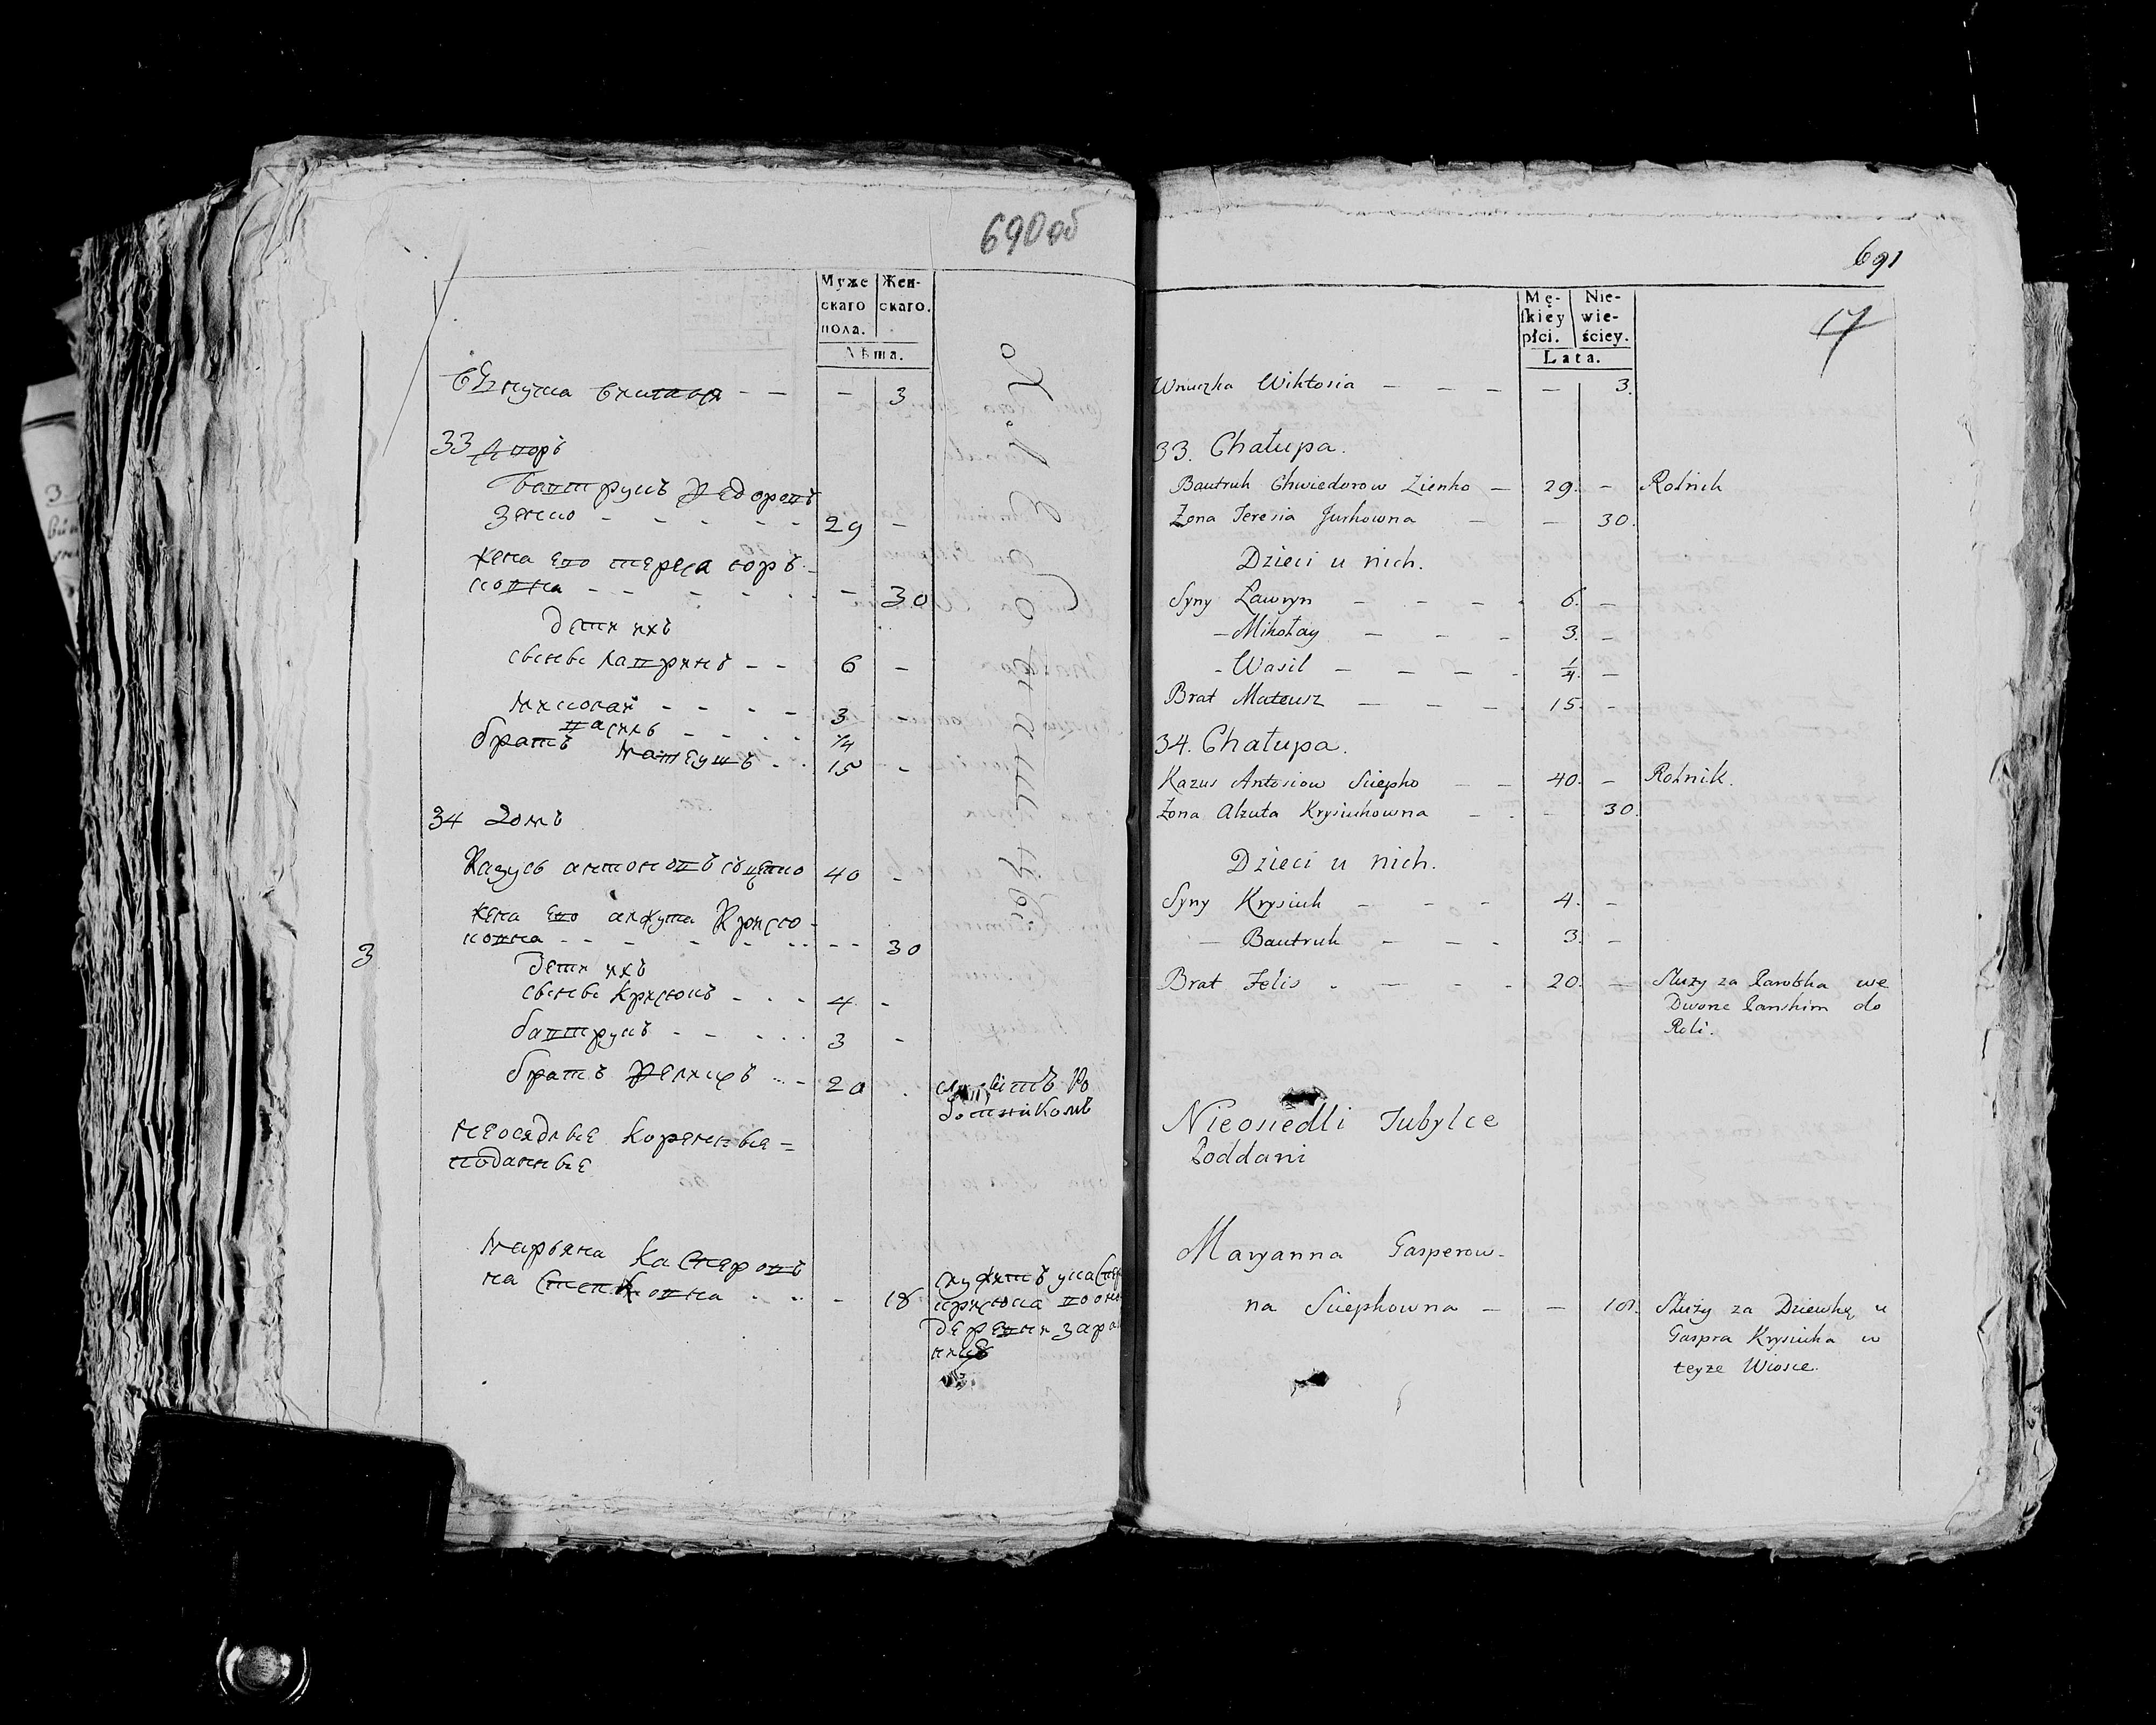 690 об
Муже
скаго
пола.
Жен-
скаго.
Лѣта.
3
33 Дворъ
Бавтрукъ Федоровъ
Зенко - - - - - 29 -
жена его тереса юрь-
ковна - - - - - - 30
дети ихъ
сыновья лавринъ - - 6 -
миколай - - - - 3 -
василь - - - - 1/4
братъ матеушъ - - 15 -
34 Домъ
Казусь антоновъ сцепко 40 -
жена его алжута Крисю-
ковна - - - - - - - - 30
3
дети ихъ
сыновья крисюкъ - - - 4 -
бавтрукъ - - - - - 3 -
братъ феликсъ - - 20
служитъ Ро
ботникомъ
неоседлые коренные =
подданные
марьяна каспоровъ
на сцепковна - - - 18
служитъ укаспе
крисюка
деревни зара
691
17
Mę-
ſkiéy
płci.
Nie-
wie-
ściey.
Lata.
Wnuczka Wiktosia - - - - 3.
33. Chałupa.
Bautruk Chwiedorow Zienko - 29. - Rolnik
Żona Teresia Jurkowna - - 30.
Dzieci u nich.
Syny Ławryn - - - - 6. -
- Mikołay - - - 3. -
- Wasil - - - - 1/4. -
Brat Mateusz - - - - 15. -
34. Chałupa.
Kazus Antosiow Sciepko - - 40. - Rolnik.
Żona Alzuta Krysiukowna - - - 30.
Dzieci u nich.
Syny Krysiuk - - - 4. -
- Bautruk - - - 3. -
Brat Felis - - - - 20. - Służy za Parobka we
Dworze Pańskim do
Roli.
Nieosiedli Tubylce
Poddani
Maryanna Gasperow-
na Sciepkowna - - 18. Służy za Dziewkę u
Gaspra Krysiuka w
teyże Wiosce.